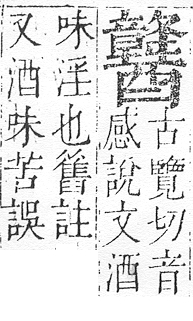 古覽切音
感說文酒
味淫也舊註
又酒味苦誤